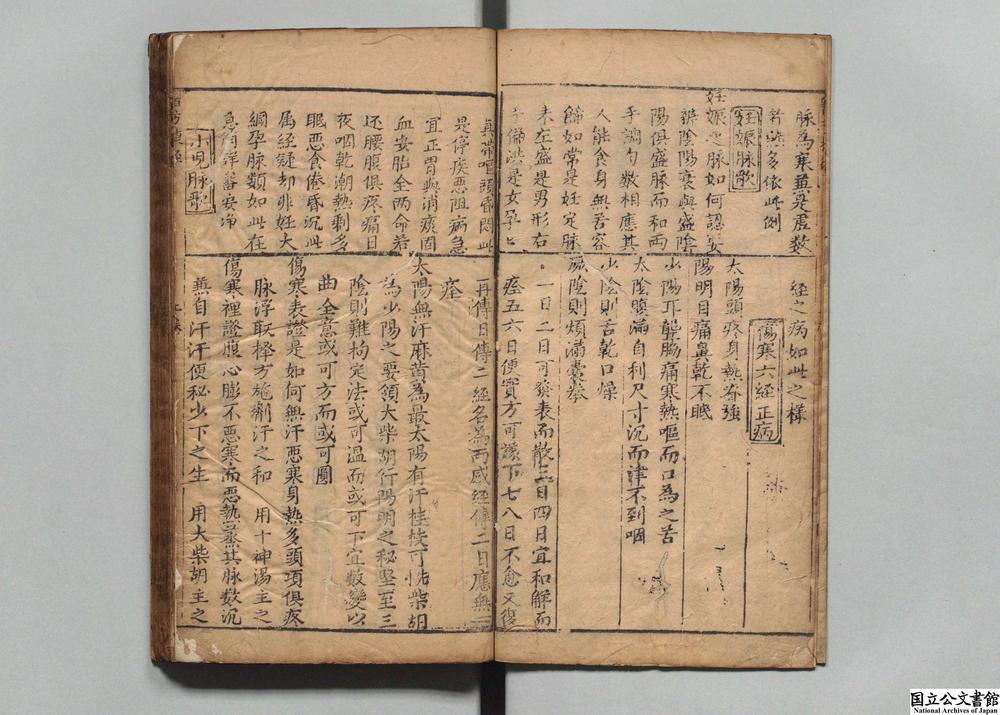 脉為寒無是虛数
多依此例
妊娠脉歌
妊娠之脉如何認妄
辨陰陽衰與盛陰
陽俱盛脉而和両
手調勻数相應其
人能食身無苦容
餙如常是妊定脉
来左盛是男形右
手偏洪是女孕
経之病如此之様
傷寒六経正病
太陽頭疼身熱脊強
陽明目痛鼻乾不眠
少陽耳聾脇痛寒熱嘔而口為之苦
太陰腹滿自利尺寸沉而津不到咽
少陰則舌乾口燥
厥陰則煩滿囊拳
一日二日可發表而散三日四日宜和解而
痊五六日便實方可議下七八日不愈又復
頭昏悶此
是停痰悪阻病急
宜正胃與消痰固
血安胎全両命若
还腰腹俱疼痛日
夜咽乾潮熱剰多
眠悪食倦昏沉此
属経疑却非妊大
綱孕脉類如此在
急用詳審安净
小児脉歌
再傳日傳二経名為両感経傳二日應無一
痊
太陽無汗麻黄為最太陽有汗桂枝可先柴胡
為少陽之要領大柴胡行陽明之秘堅至三
陰則難拘定法或可温而或可下宜数變以
曲全意或可方而或可圓
傷寒表證是如何無汗悪寒身熱多頭項俱疼
脉浮取擇方施劑汗之和 用十神湯主之
傷寒裡證腹心膨不悪寒而悪熱蒸其脉数沉
無自汗汗便秘少下之生 用大柴胡主之
国立公文書館
National Archives of Japan